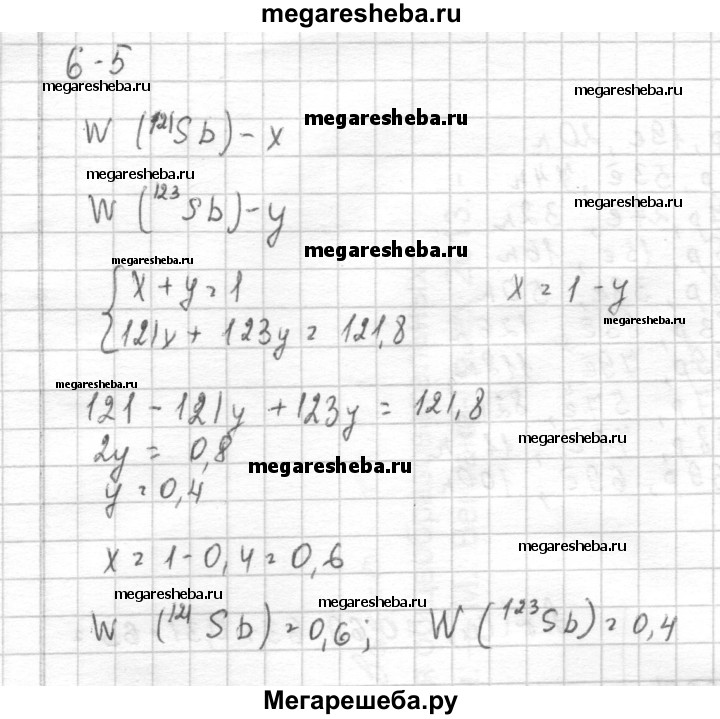 megaresheba.ru
6-5
megaresheba.ru megaresheba.ru
W (¹²¹Sb) - x megaresheba.ru
megaresheba.ru
W (¹²³Sb) - y megaresheba.ru
megaresheba.ru megaresheba.ru
{ x + y = 1 x = 1 - y
{ 121x + 123y = 121,8 megaresheba.ru
megaresheba.ru
121 - 121y + 123y = 121,8
2y = 0,8 megaresheba.ru
megaresheba.ru
y = 0,4
x = 1 - 0,4 = 0,6 megaresheba.ru
megaresheba.ru megaresheba.ru
W (¹²¹Sb) = 0,6; W (¹²³Sb) = 0,4
Мегарешеба.ру